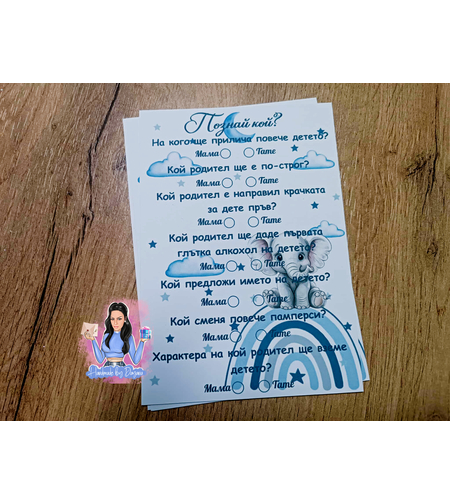 Познай кой?
На кого ще прилича повече детето?
Мама Тате
Кой родител ще е по-строг?
Мама Тате
Кой родител е направил крачката
за дете пръв?
Мама Тате
Кой родител ще даде първата
глътка алкохол на детето?
Мама Тате
Кой предложи името на детето?
Мама Тате
Кой сменя повече памперси?
Мама Тате
Характера на кой родител ще вземе
детето?
Мама Тате